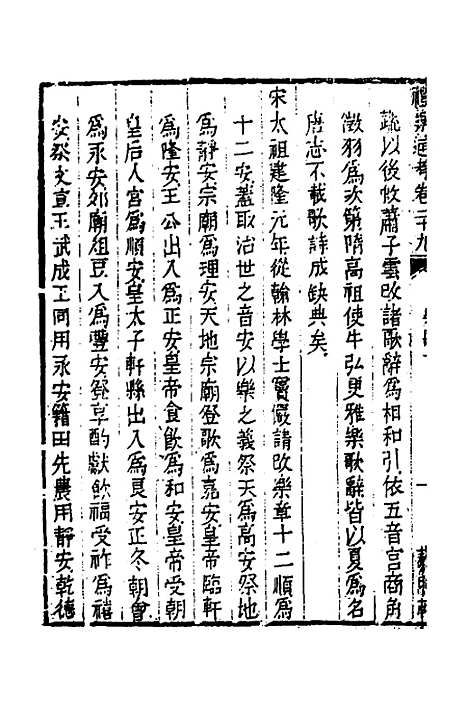 禮樂通考卷二十九
疏以後攸蕭子雲改諸歌辭爲相和引依五音宮商角
徵羽爲次第隋高祖使牛弘更雅樂歌辭皆以夏爲名
唐志不載歌詩成缺典矣
宋太祖建隆元年從翰林學士竇儼請改樂章十二順爲
十二安蓋取治世之音安以樂之義祭天爲高安祭地
爲靜安宗廟爲理安天地宗廟登歌爲嘉安皇帝臨軒
爲隆安王公出入爲正安皇帝食飲爲和安皇帝受朝
皇后入宮爲順安皇太子軒縣出入爲良安正冬朝會
爲永安郊廟俎豆入爲豐安祭享酌獻飲福受胙爲禧
安祭文宣王武成王同用永安籍田先農用靜安乾德